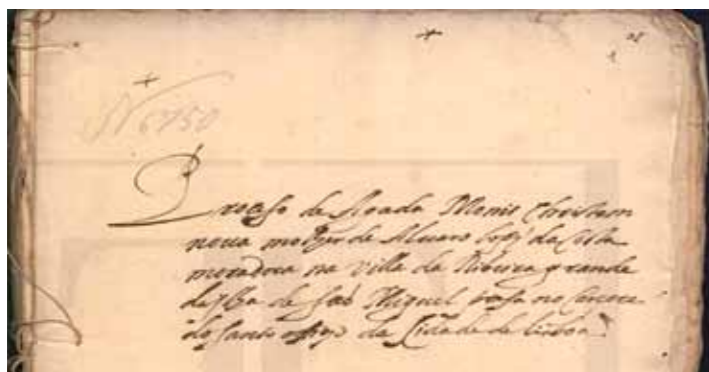 Nº 6750
Processo de Agada Monis Christam
noua molher de Aluaro Lopz da Costa
moradora na villa da Ribeira grande
da ylha de são Miguel presa no carcere
do santo officio da Cidade de lixboa